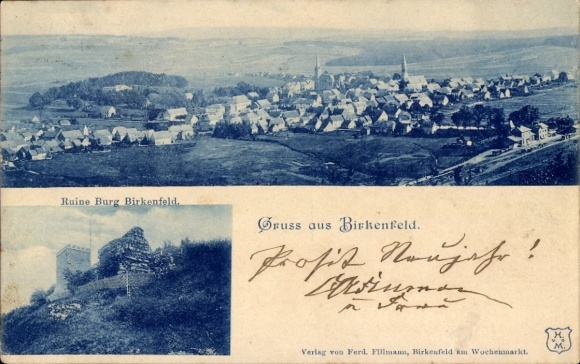 Ruine Burg Birkenfeld.
Gruss aus Birkenfeld.
Prosit Neujahr!
u Frau
Verlag von Ferd. Fillmann, Birkenfeld am Wochenmarkt.
H.
v.
M.